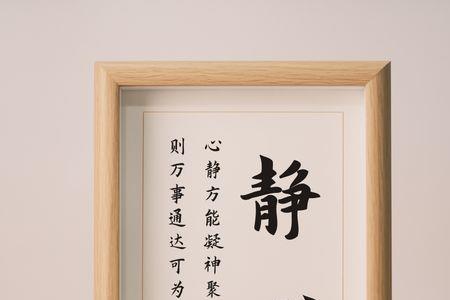 静
心静方能凝神聚
则万事通达可为